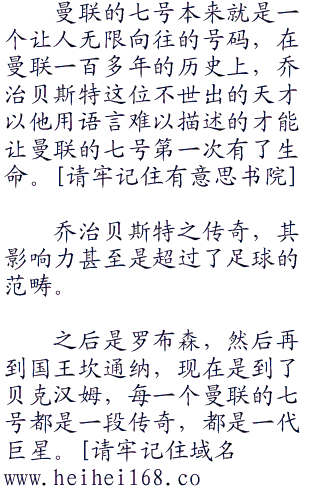 曼联的七号本来就是一
个让人无限向往的号码，在
曼联一百多年的历史上，乔
治贝斯特这位不世出的天才
以他用语言难以描述的才能
让曼联的七号第一次有了生
命。[请牢记住有意思书院]
乔治贝斯特之传奇，其
影响力甚至是超过了足球的
范畴。
之后是罗布森，然后再
到国王坎通纳，现在是到了
贝克汉姆，每一个曼联的七
号都是一段传奇，都是一代
巨星。[请牢记住域名
www.heihei168.co